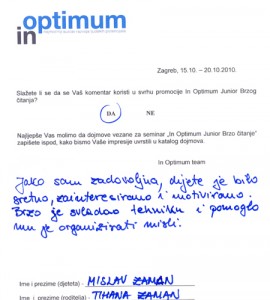 in optimum
Zagreb, 15.10. – 20.10.2010.
Slažete li se da se Vaš komentar koristi u svrhu promocije In Optimum Junior Brzog
čitanja?
DA NE
Najljepše Vas molimo da dojmove vezane za seminar „In Optimum Junior Brzo čitanje"
zapišete ispod, kako bismo Vaše impresije uvrstili u katalog dojmova.
In Optimum team
Jako sam zadovoljna, dijete je bilo
sretno, zainteresirano i motivirano.
Brzo je svladao tehniku i pomoglo
mu je organizirati misli.
Ime i prezime (djeteta) - MISLAV ZAMAN
Ime i prezime (roditelja) - TIHANA ZAMAN